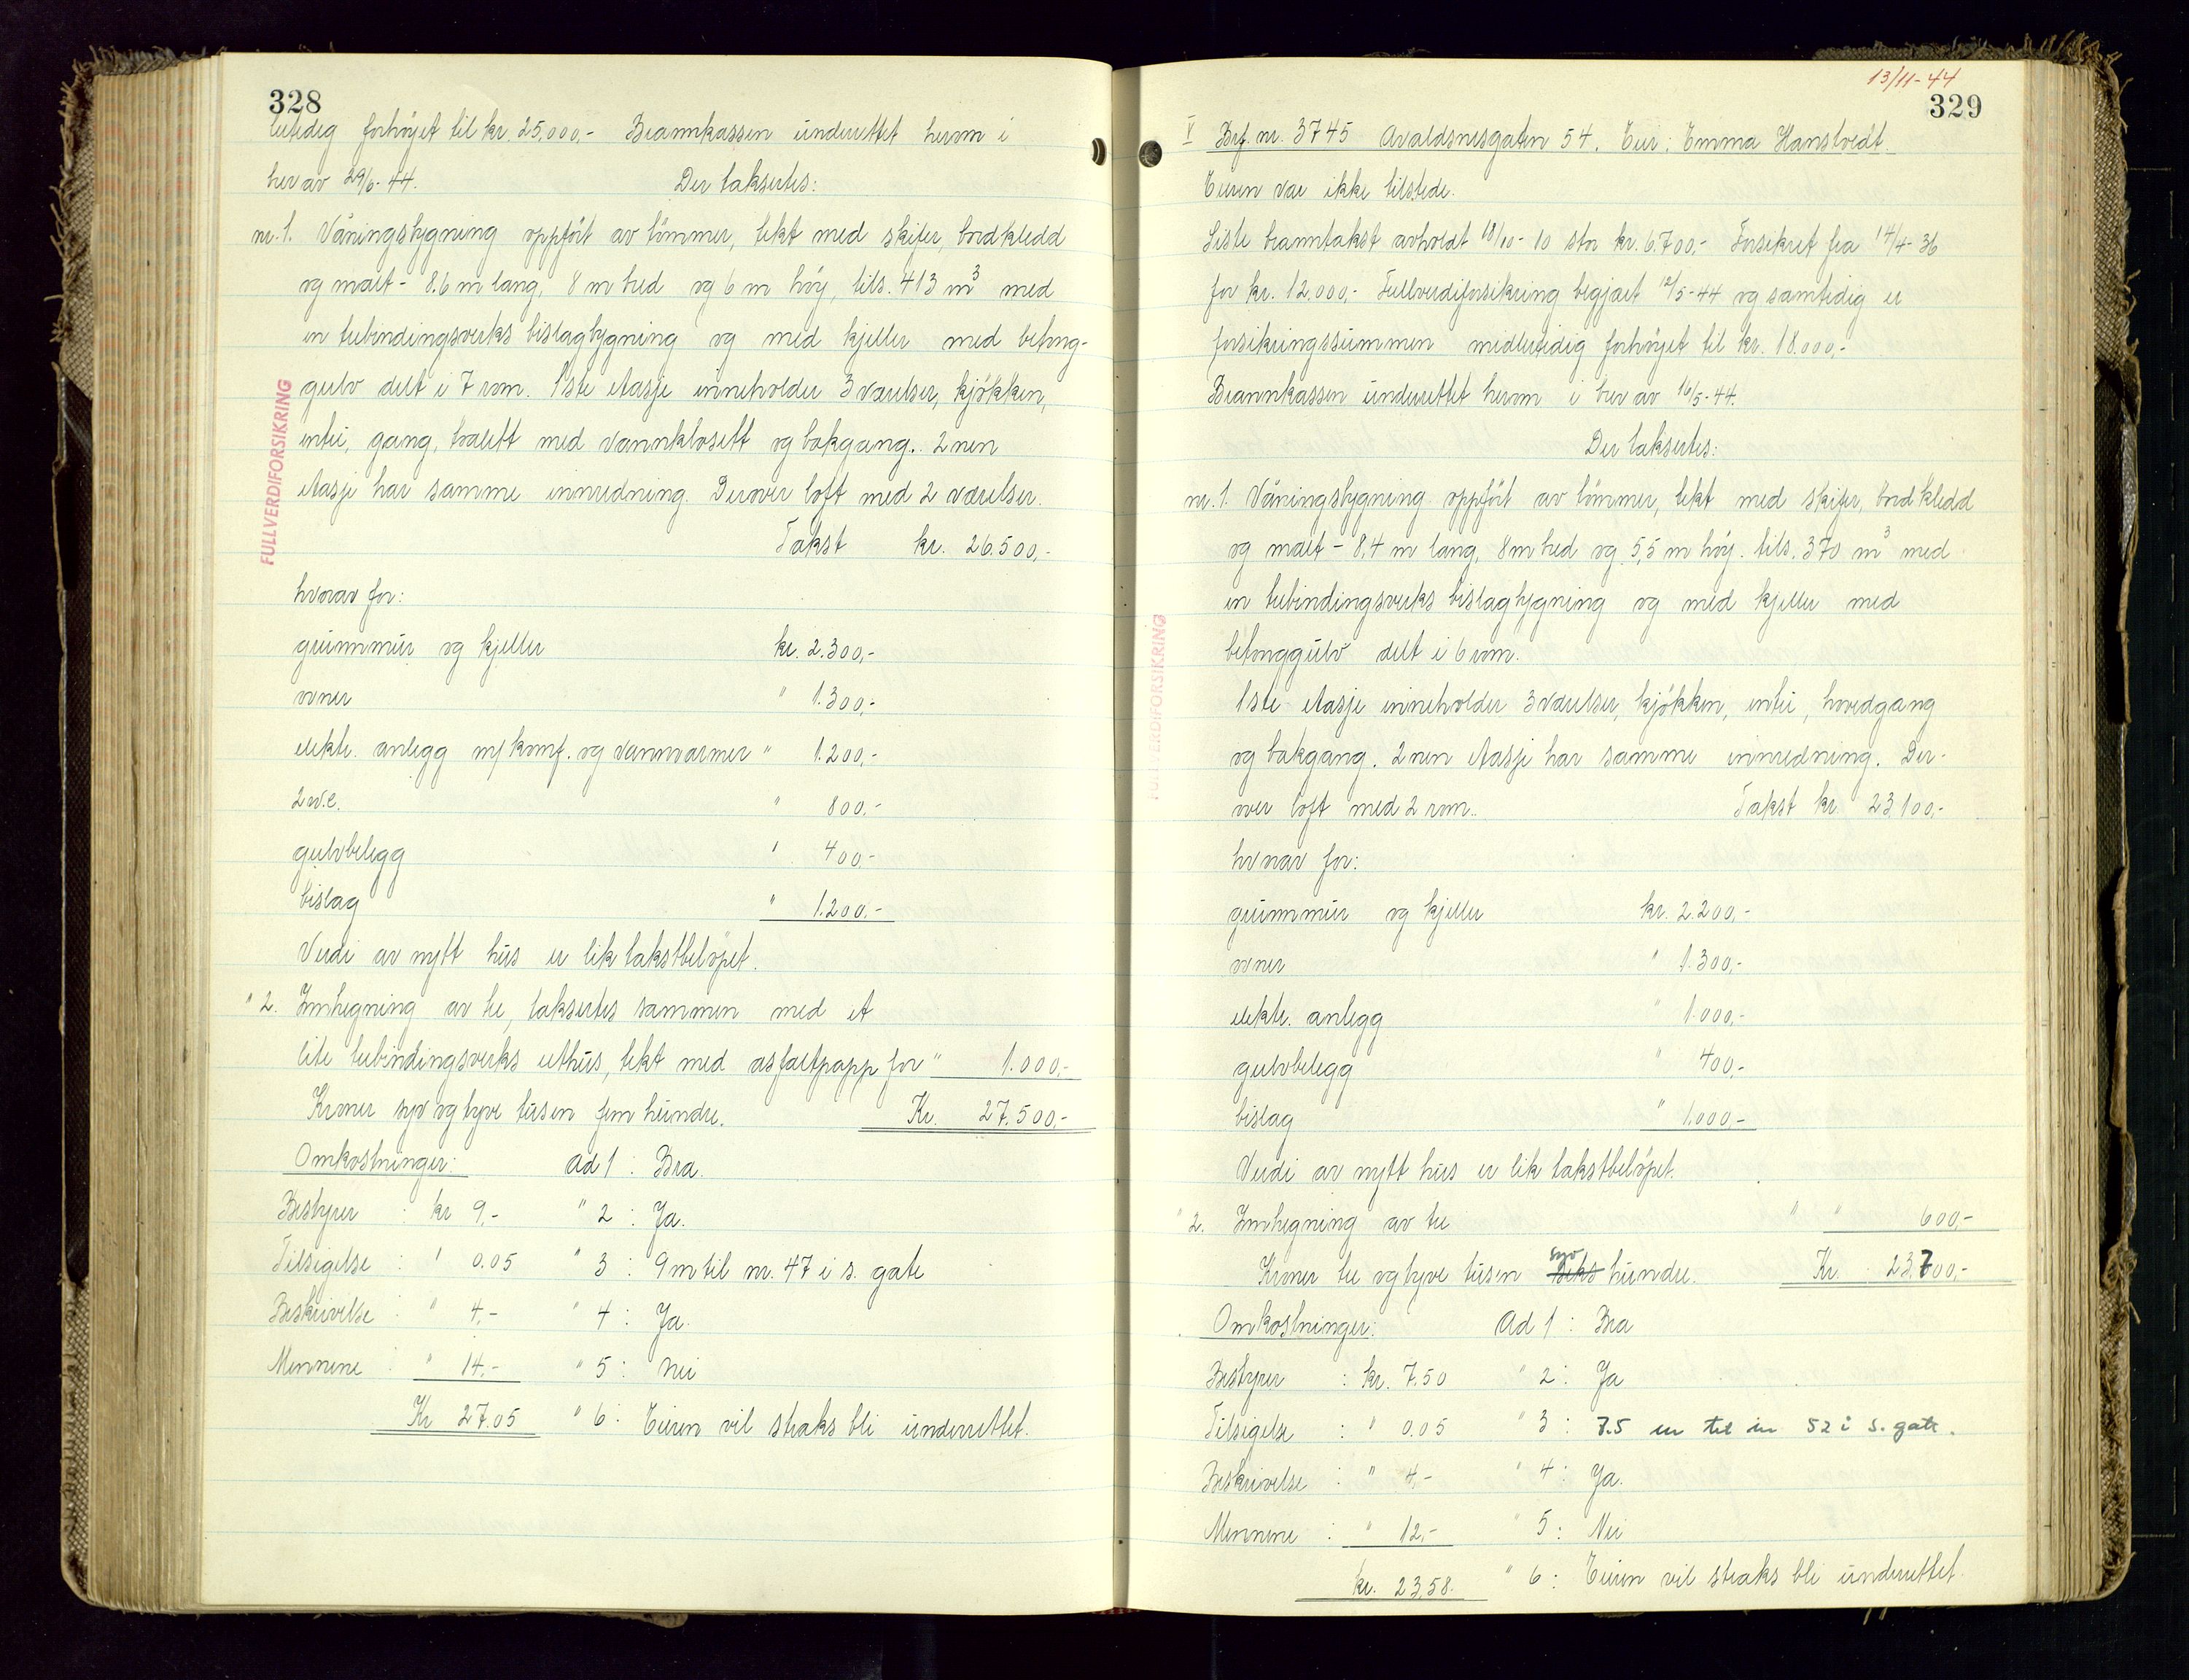 328
lertidig forhöyet til kr. 25.000,- Brannkassen underrettet herom i
brev av 29/6-44. Der taksertes:
nr. 1. Våningsbygning oppfört av tömmer, tekt med skifer, bordkledd
og malt - 8.6 m lang, 8 m bred og 6 m höy, tils. 413 m³ med
en trebindingsverks bislagbygning og med kjeller med betong-
gulv delt i 7 rom. 1ste etasje inneholder 3 værelser, kjökken,
entré, gang, toalett med vannklosett og bakgang. 2nen
etasje har samme innredning. Derover loft med 2 værelser.
Takst kr. 26.500,-
FULLVERDIFORSIKRING
hvorav for:
grunnmur og kjeller kr. 2.300,-
ovner " 1.300,-
elektr. anlegg m/ komf. og vannvarmer " 1.200,-
2 w.c. " 800,-
gulvbelegg " 400,-
bislag " 1.200,-
Verdi av nytt hus er lik takstbelöpet.
" 2. Innhegning av tre, taksertes sammen med et
lite trebindingsverks uthus, tekt med asfaltpapp for " 1.000,-
Kroner syv og tyve tusen fem hundre. Kr. 27.500,-
Omkostninger: Ad 1 : Bra.
Bestyrer : kr 9,- " 2 : Ja.
Tilsigelse : " 0.05 " 3 : 9 m til nr. 47 i s. gate
Beskrivelse : " 4,- " 4 : Ja.
Mennene : " 14,- " 5 : Nei
Kr 27.05 " 6 : Eieren vil straks bli underrettet.
13/11-44
329
V Brf. nr. 3745 Avaldsnesgaten 54. Eier: Emma Hanstvedt.
Eieren var ikke tilstede.
Siste branntakst avholdt 18/10-10 stor kr. 6.700,- Forsikret fra 14/4-36
for kr. 12.000,- Fullverdiforsikring begjært 12/5-44 og samtidig er
forsikringssummen midlertidig forhöyet til kr. 18.000,-
Brannkassen underrettet herom i brev av 16/5-44.
Der taksertes:
nr. 1. Våningsbygning oppfört av tömmer, tekt med skifer, bordkledd
og malt - 8,4 m lang, 8 m bred og 5,5 m höy. tils. 370 m³ med
en trebindingsverks bislagbygning og med kjeller med
betonggulv delt i 6 rom.
FULLVERDIFORSIKRING
1ste etasje inneholder 3 værelser, kjökken, entré, hovedgang
og bakgang. 2nen etasje har samme innredning. Der-
over loft med 2 rom. Takst kr. 23.100,-
hvorav for:
grunnmur og kjeller kr. 2.200,-
ovner " 1.300,-
elektr. anlegg " 1.000,-
gulvbelegg " 400,-
bislag " 1.000,-
Verdi av nytt hus er lik takstbelöpet.
" 2. Innhegning av tre " " 600,-
syv
Kroner tre og tyve tusen seks hundre. Kr. 23.700,-
Omkostninger: Ad 1 : Bra
Bestyrer : kr. 7.50 " 2 : Ja
Tilsigelse : " 0.05 " 3 : 7.5 m til nr 52 i s. gate.
Beskrivelse : " 4,- " 4 : Ja.
Mennene : " 12,- " 5 : Nei
kr. 23.58. " 6 : Eieren vil straks bli underrettet.